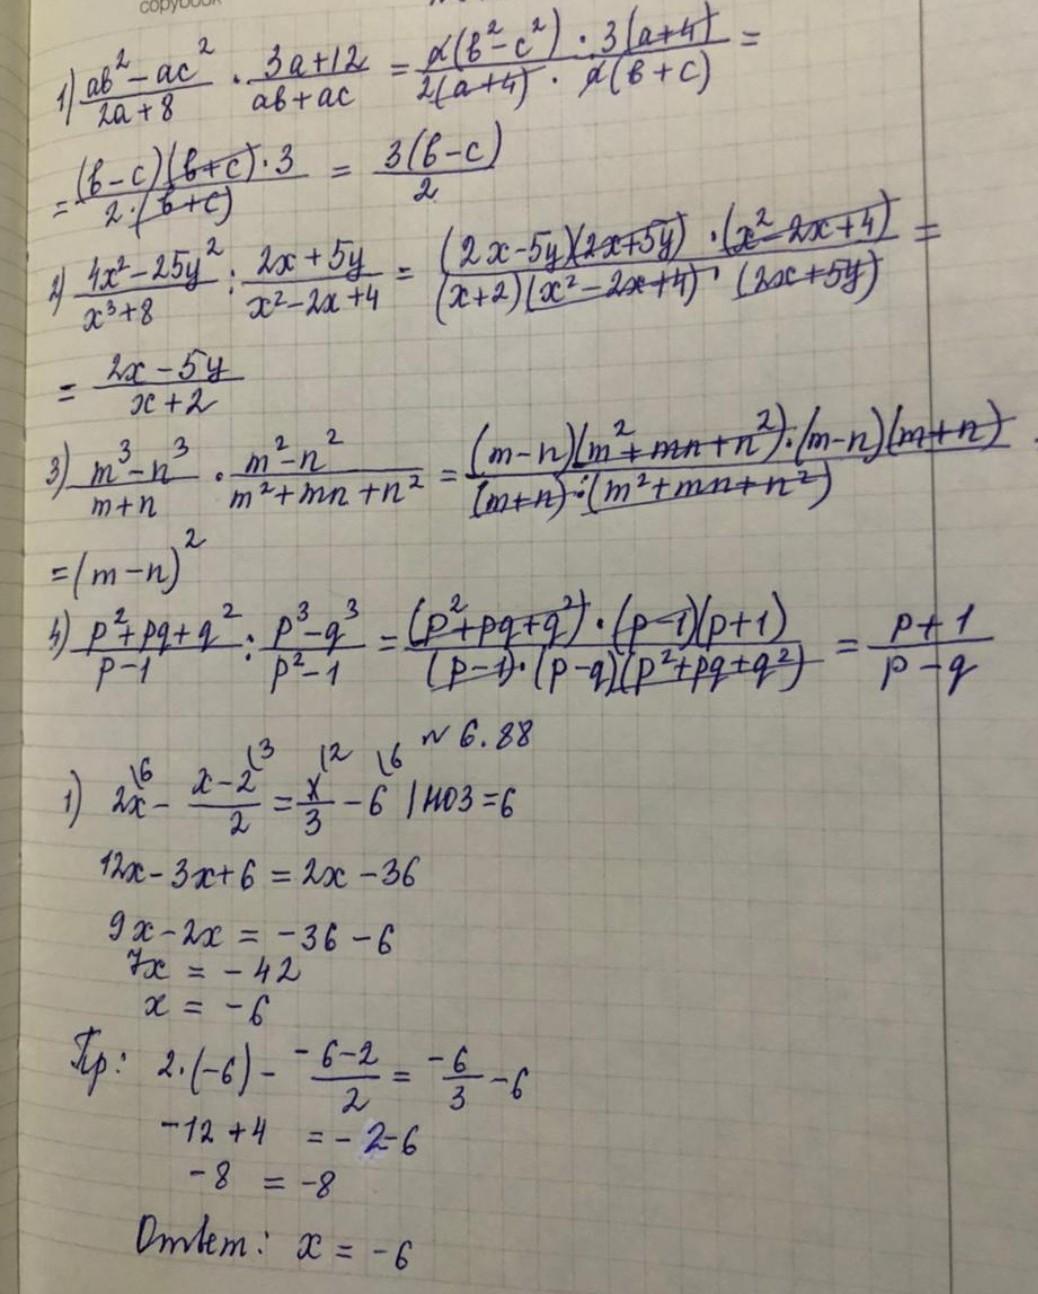 copybook
1) (ab² − ac²)/(2a + 8) · (3a + 12)/(ab + ac) = (a(b² − c²) · 3(a + 4))/(2(a + 4) · a(b + c)) =
= ((b − c)(b + c) · 3)/(2 · (b + c)) = 3(b − c)/2
2) (4x² − 25y²)/(x³ + 8) : (2x + 5y)/(x² − 2x + 4) = ((2x − 5y)(2x + 5y) · (x² − 2x + 4))/((x + 2)(x² − 2x + 4) · (2x + 5y)) =
= (2x − 5y)/(x + 2)
3) (m³ − n³)/(m + n) · (m² − n²)/(m² + mn + n²) = ((m − n)(m² + mn + n²) · (m − n)(m + n))/((m + n) · (m² + mn + n²))
= (m − n)²
4) (p² + pq + q²)/(p − 1) : (p³ − q³)/(p² − 1) = ((p² + pq + q²) · (p − 1)(p + 1))/((p − 1) · (p − q)(p² + pq + q²)) = (p + 1)/(p − q)
№ 6.88
1) 2x\6 − (x − 2)/2\3 = x/3\2 − 6\6 | НОЗ = 6
12x − 3x + 6 = 2x − 36
9x − 2x = −36 − 6
7x = −42
x = −6
Пр: 2 · (−6) − (−6 − 2)/2 = −6/3 − 6
−12 + 4 = −2 − 6
−8 = −8
Ответ: x = −6